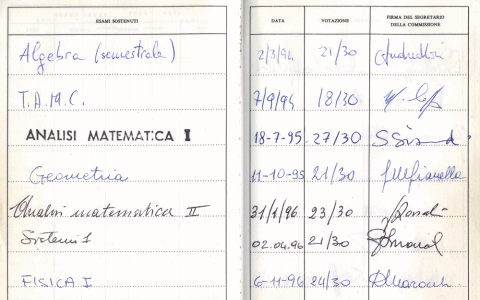 ESAMI SOSTENUTI DATA VOTAZIONE FIRMA DEL SEGRETARIO DELLA COMMISSIONE
Algebra (semestrale) 2/3/94 21/30
T.A.M.C. 7/9/94 18/30
ANALISI MATEMATICA I 18-7-95 27/30
Geometria 11-10-95 21/30
Analisi matematica II 31/1/96 23/30
Sistemi 1 02.04.96 21/30
FISICA I 6-11-96 24/30